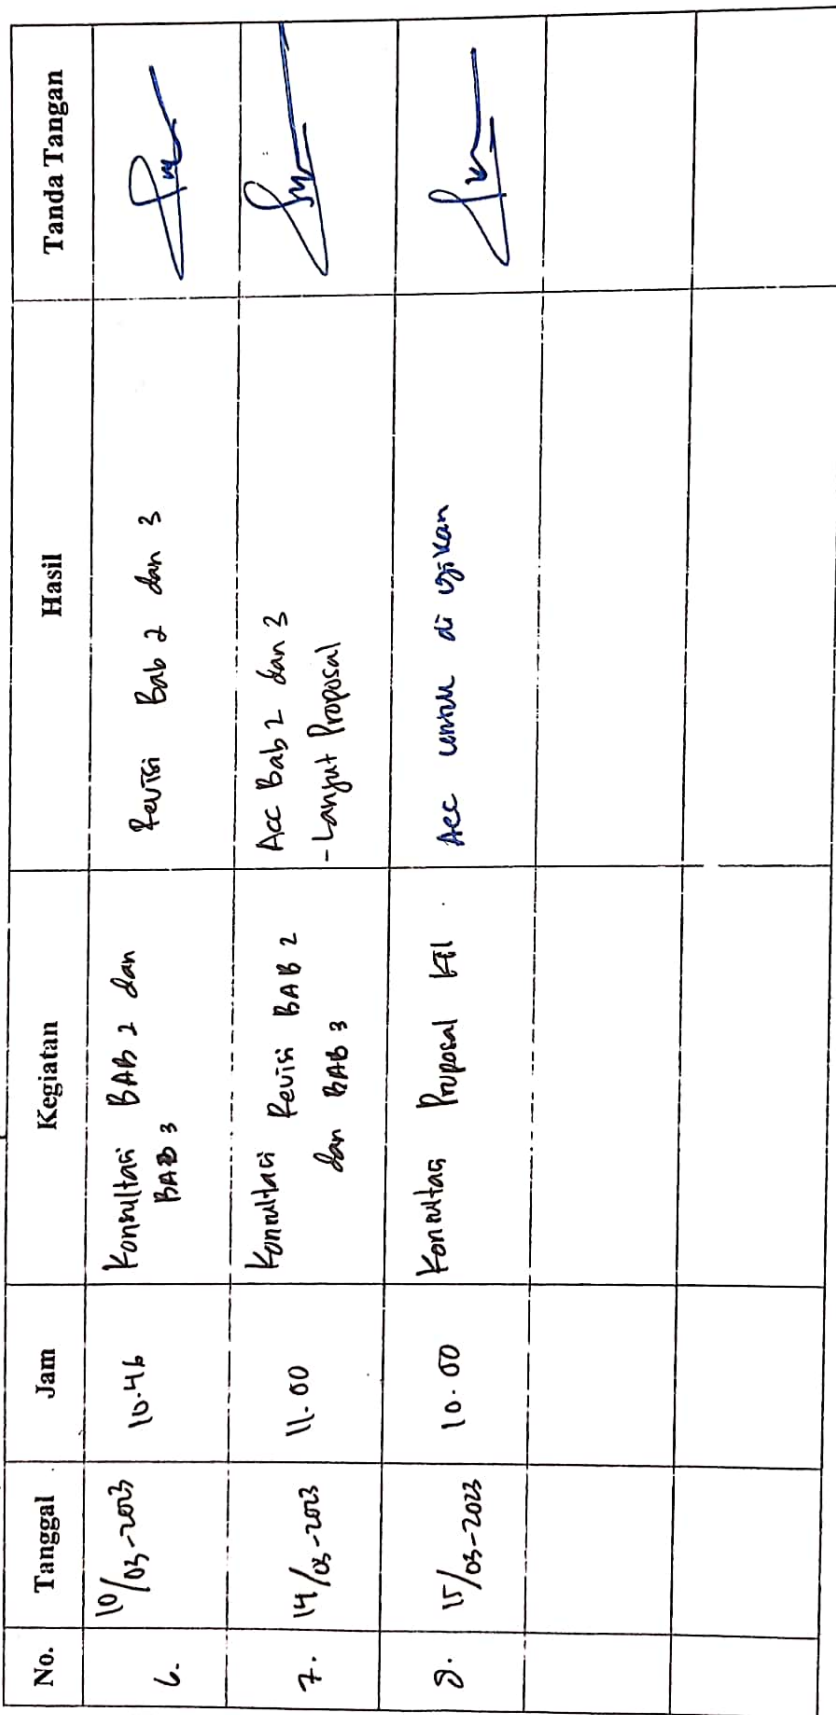 No. Tanggal Jam Kegiatan Hasil Tanda Tangan
6. 10/03-2023 10.46 Konsultasi BAB 2 dan Revisi Bab 2 dan 3
BAB 3
7. 14/03-2023 11.00 Konsultasi Revisi BAB 2 Acc Bab 2 dan 3
dan BAB 3 - Lanjut Proposal
8. 15/03-2023 10.00 Konsultasi Proposal KTI Acc untuk di ujikan